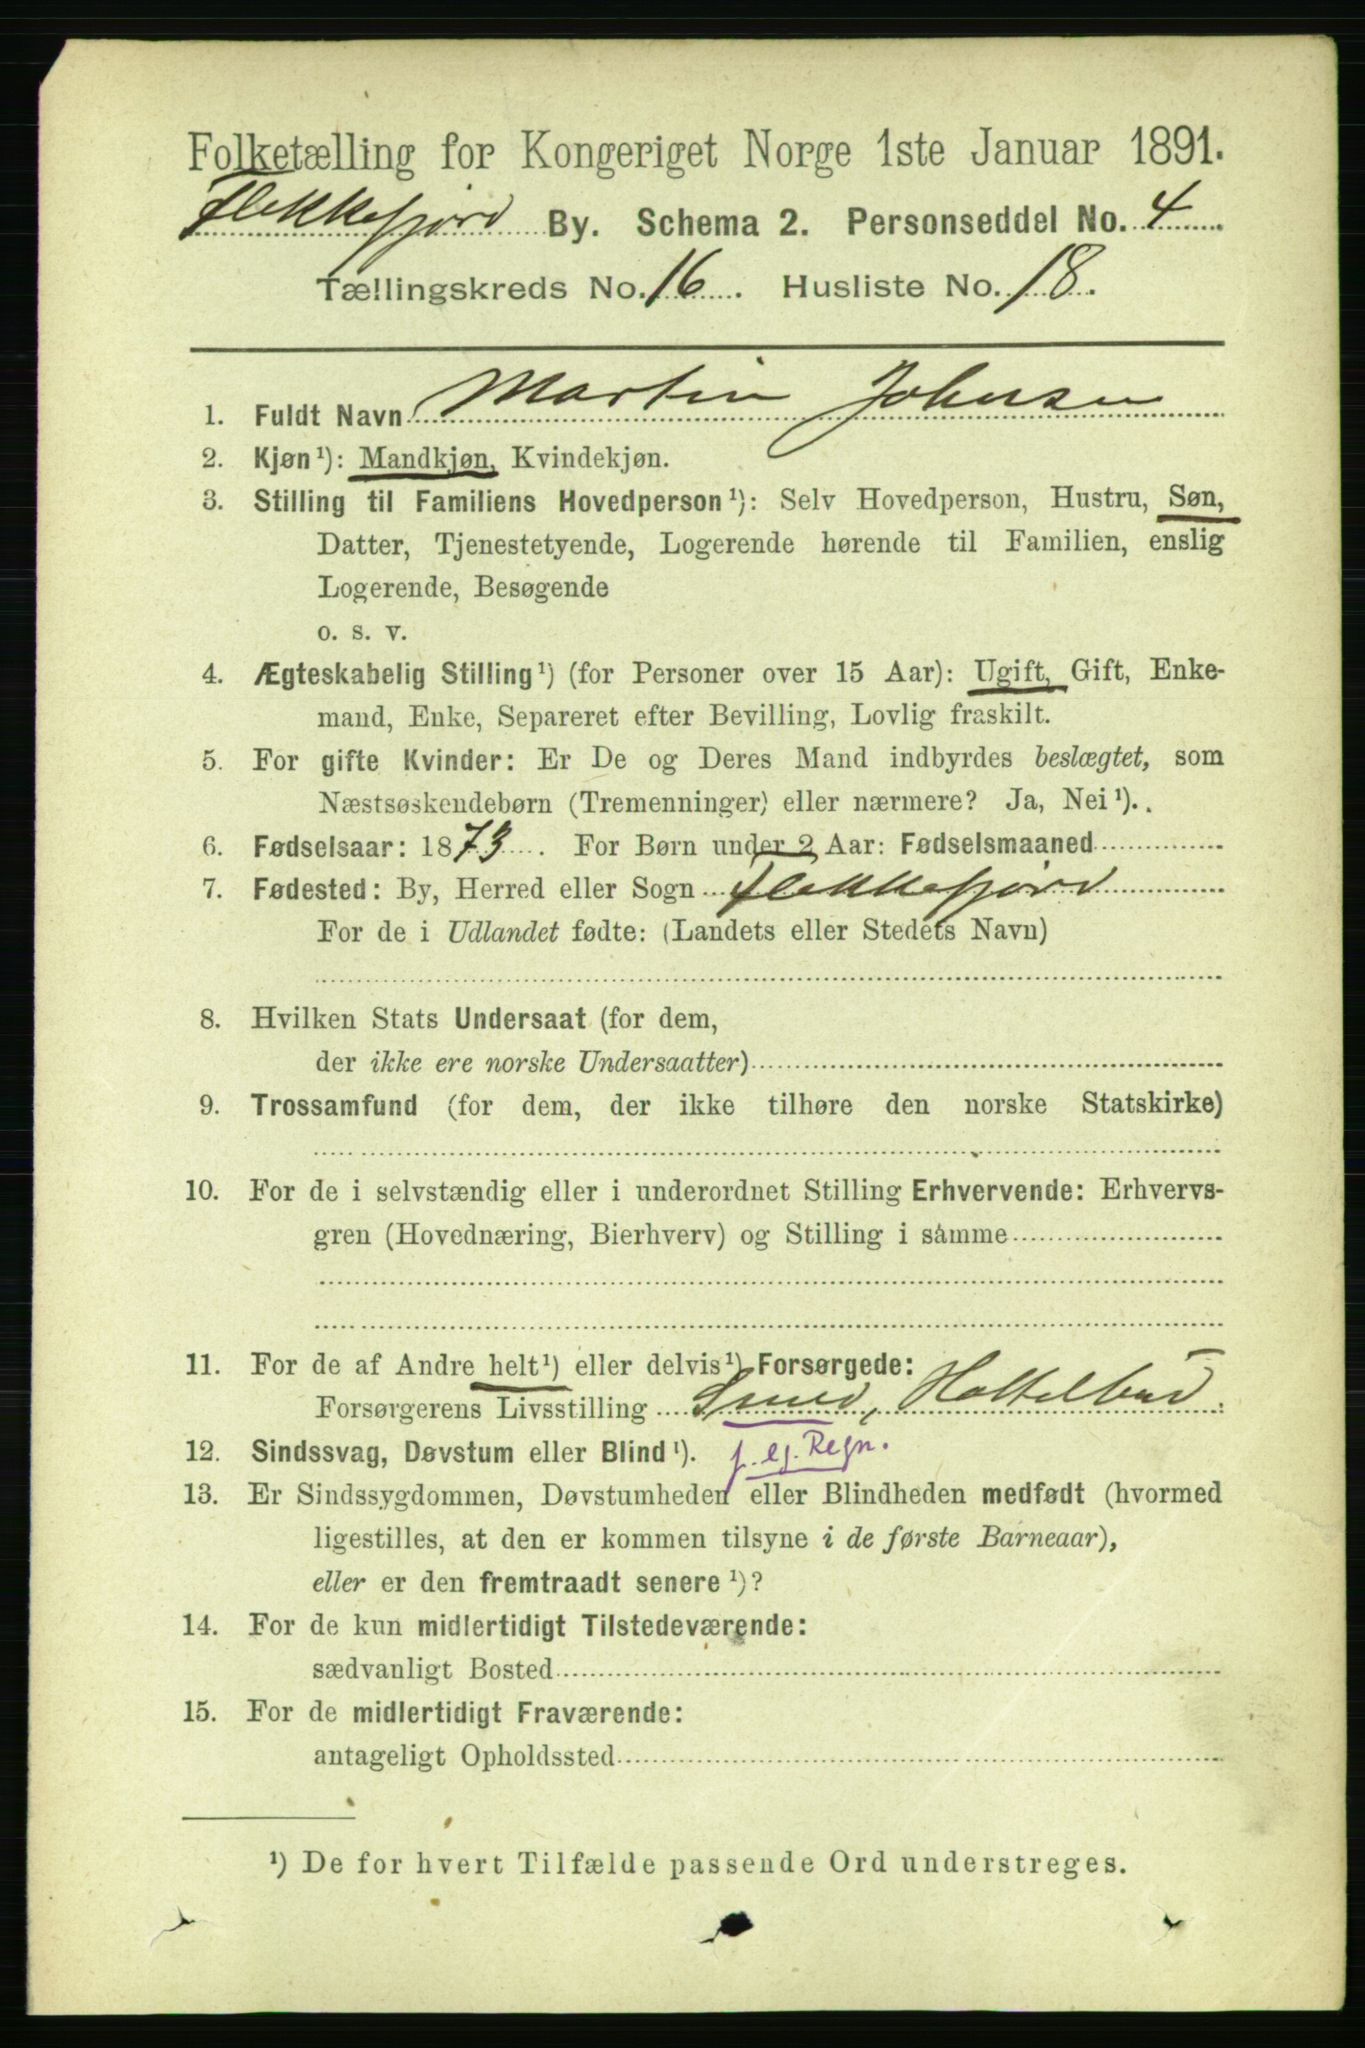 Folketælling for Kongeriget Norge 1ste Januar 1891.
Flekkefjord By. Schema 2. Personseddel No. 4
Tællingskreds No. 16. Husliste No. 18.
1. Fuldt Navn Martin Johnsen
2. Kjøn¹): Mandkjøn, Kvindekjøn.
3. Stilling til Familiens Hovedperson¹): Selv Hovedperson, Hustru, Søn,
Datter, Tjenestetyende, Logerende hørende til Familien, enslig
Logerende, Besøgende
o. s. v.
4. Ægteskabelig Stilling¹) (for Personer over 15 Aar): Ugift, Gift, Enke-
mand, Enke, Separeret efter Bevilling, Lovlig fraskilt.
5. For gifte Kvinder: Er De og Deres Mand indbyrdes beslægtet, som
Næstsøskendebørn (Tremenninger) eller nærmere? Ja, Nei¹).
6. Fødselsaar: 1873. For Børn under 2 Aar: Fødselsmaaned
7. Fødested: By, Herred eller Sogn Flekkefjord
For de i Udlandet fødte: (Landets eller Stedets Navn)
8. Hvilken Stats Undersaat (for dem,
der ikke ere norske Undersaatter)
9. Trossamfund (for dem, der ikke tilhøre den norske Statskirke)
10. For de i selvstændig eller i underordnet Stilling Erhvervende: Erhvervs-
gren (Hovednæring, Bierhverv) og Stilling i samme
11. For de af Andre helt¹) eller delvis¹) Forsørgede:
Forsørgerens Livsstilling Smed,
12. Sindssvag, Døvstum eller Blind¹). f. eg. Regn.
13. Er Sindssygdommen, Døvstumheden eller Blindheden medfødt (hvormed
ligestilles, at den er kommen tilsyne i de første Barneaar),
eller er den fremtraadt senere¹)?
14. For de kun midlertidigt Tilstedeværende:
sædvanligt Bosted
15. For de midlertidigt Fraværende:
antageligt Opholdssted
¹) De for hvert Tilfælde passende Ord understreges.